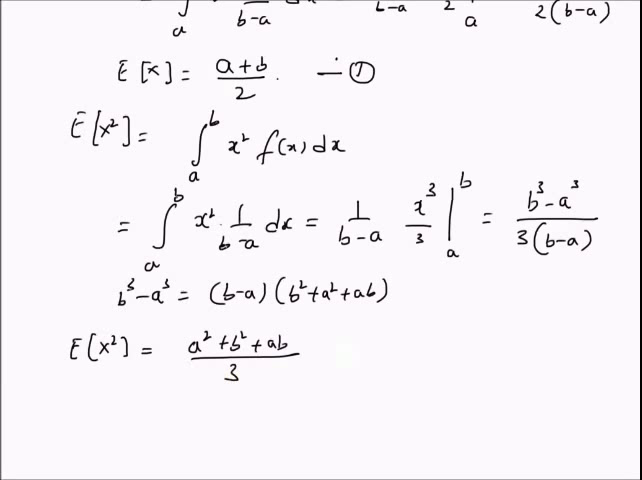 ∫ₐ b-a b-a 2 a 2(b-a)
E[x] = (a+b)/2. — ①
E[x²] = ∫ₐᵇ x² f(x) dx
= ∫ₐᵇ x² · 1/(b-a) dx = 1/(b-a) x³/3 |ₐᵇ = (b³-a³)/(3(b-a))
b³-a³ = (b-a)(b²+a²+ab)
E[x²] = (a²+b²+ab)/3